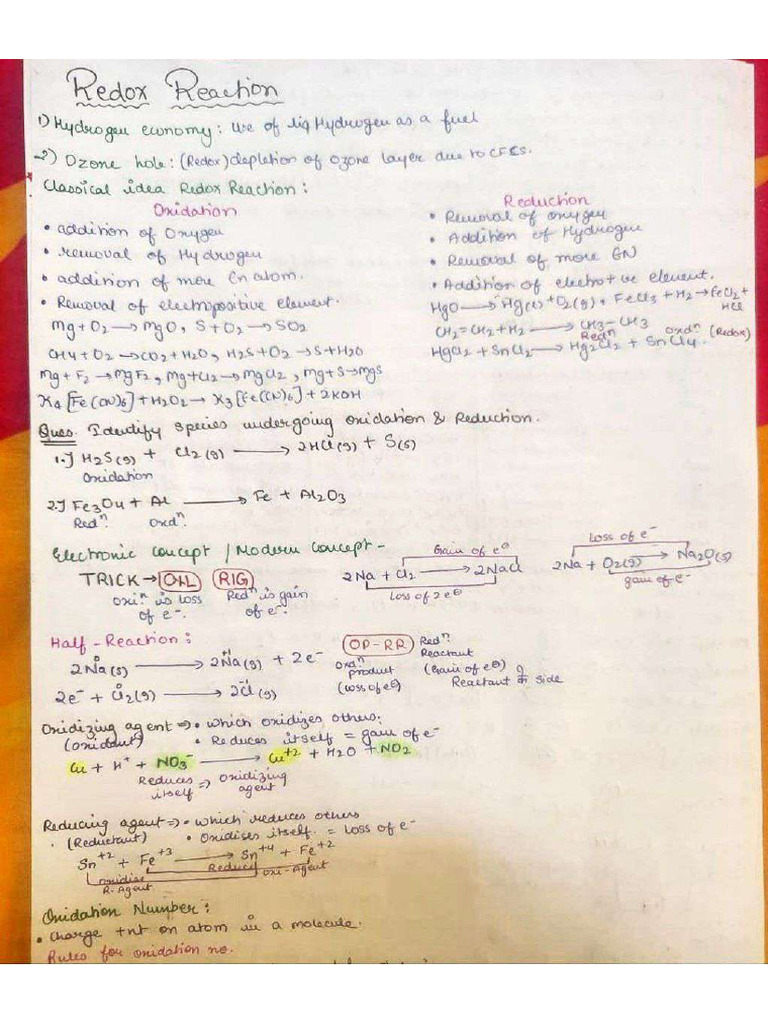 Redox Reaction
1) Hydrogen economy: Use of liq Hydrogen as a fuel
2) Ozone hole: (Redox) depletion of ozone layer due to CFCs.
Classical idea Redox Reaction:
Oxidation
• addition of Oxygen
• removal of Hydrogen
• addition of more En atom.
• Removal of electropositive element.
Mg + O2 → MgO, S + O2 → SO2
CH4 + O2 → CO2 + H2O, H2S + O2 → S + H2O
Mg + F2 → MgF2, Mg + Cl2 → MgCl2, Mg + S → MgS
K4[Fe(CN)6] + H2O2 → K3[Fe(CN)6] + 2KOH
Reduction
• Removal of oxygen
• Addition of Hydrogen
• Removal of more EN
• Addition of electro+ve element.
HgO → Hg(l) + O2(g), FeCl3 + H2 → FeCl2 +
HCl
CH2=CH2 + H2 → CH3-CH3
Redⁿ oxdⁿ (Redox)
HgCl2 + SnCl2 → Hg2Cl2 + SnCl4.
Ques. Identify species undergoing oxidation & Reduction.
1.) H2S(g) + Cl2(g) → 2HCl(g) + S(s)
Oxidation
2.) Fe3O4 + Al → Fe + Al2O3
Redⁿ. Oxdⁿ.
Electronic concept / Modern concept -
TRICK → OIL RIG
oxiⁿ is loss of e⁻.
Redⁿ is gain of e⁻.
Gain of e⊖
2Na + Cl2 → 2NaCl
Loss of 2e⊖
Loss of e⁻
2Na + O2(g) → Na2O(s)
gain of e⁻
Half-Reaction:
2Na⁰(s) → 2Na⁺¹(g) + 2e⁻
2e⁻ + Cl2⁰(g) → 2Cl⁻¹(g)
OP-RR
oxdⁿ
product
(Loss of e⊖)
Redⁿ
Reactant
(Gain of e⊖)
Reactant side
Oxidizing agent ⇒ • which oxidizes others;
(oxidant) • Reduces itself = gain of e⁻
Cu + H⁺ + NO3⁻ → Cu⁺² + H2O + NO2
Reduces itself ⇒ Oxidizing agent
Reducing agent ⇒ • which reduces others
(Reductant) • Oxidises itself. = Loss of e⁻
Sn⁺² + Fe⁺³ → Sn⁺⁴ + Fe⁺²
Oxidise Reduce
R-Agent oxi-Agent
Oxidation Number:
• Charge +nt on atom in a molecule.
Rules for oxidation no.